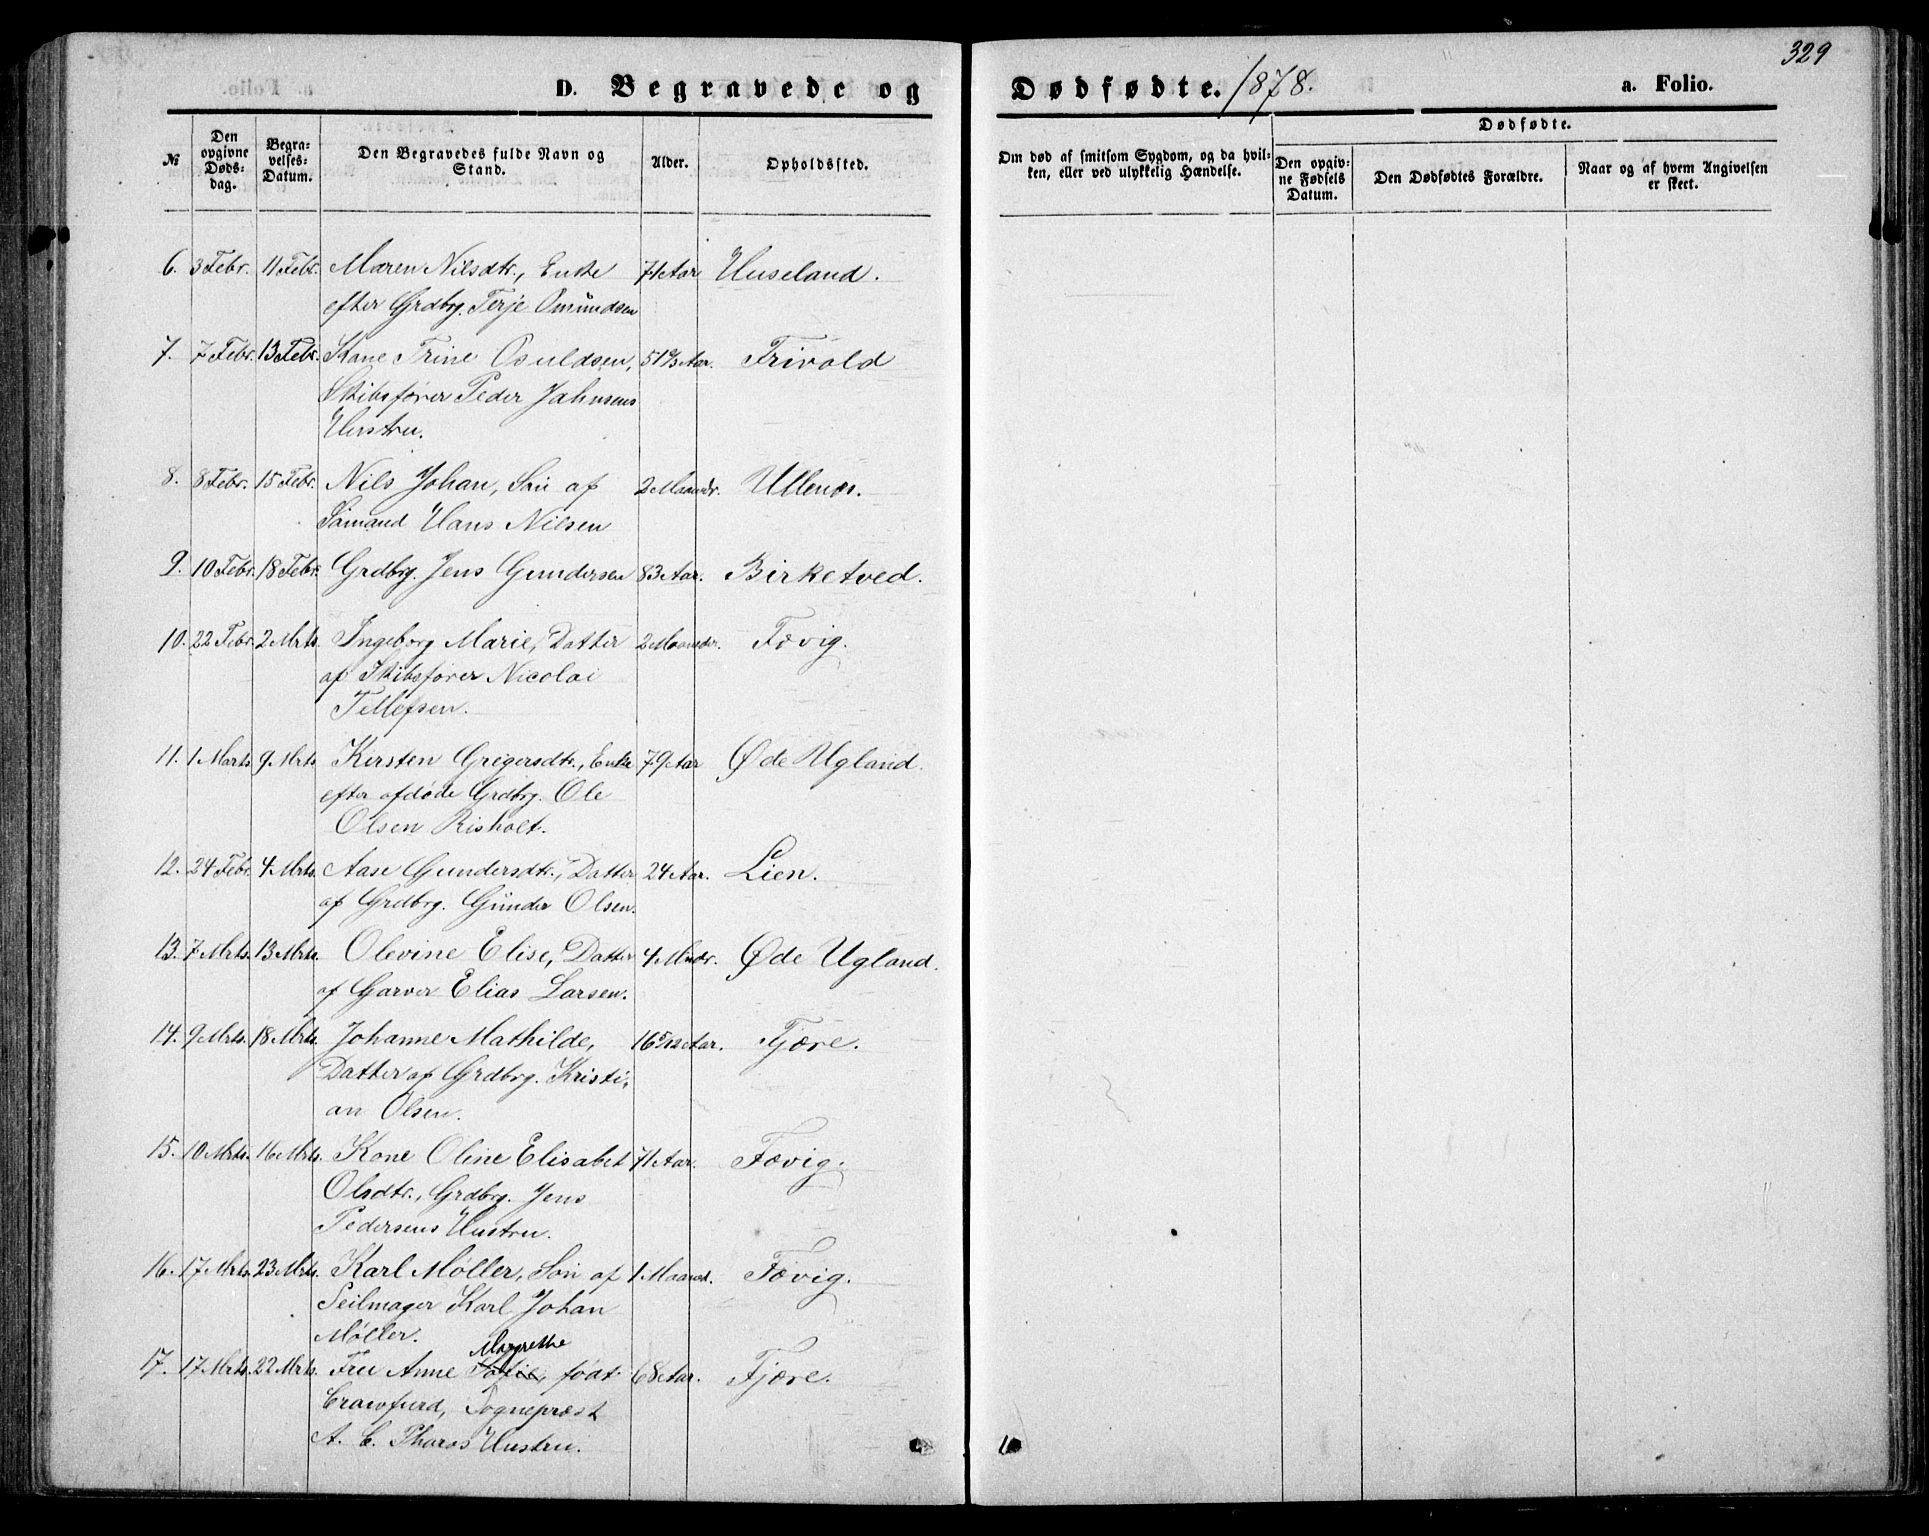 329
D. Begravede og Dødfødte. 1878. a. Folio.
№
Den opgivne Døds-dag.
Begra-velses-Datum.
Den Begravedes fulde Navn og Stand.
Alder.
Opholdssted.
Om død af smitsom Sygdom, og da hvil-ken, eller ved ulykkelig Hændelse.
Dødfødte.
Den opgiv-ne Fødsels Datum.
Den Dødfødtes Forældre.
Naar og af hvem Angivelsen er skeet.
6. 3 Febr. 11 Febr. Maren Nilsdtr., Enke 71 Aar Huseland.
efter Grdbrg. Terje Omundsen
7. 7 Febr. 13 Febr. Kone Trine Osuldsen, 51 Aar. Trivold
Skibsfører Peder Jahnsens
Hustru.
8. 8 Febr. 15 Febr. Nils Johan, Søn af 2 Maandr. Ullenes.
Sømand Hans Nilsen
9. 10 Febr. 18 Febr. Grdbrg. Jens Gundersen 83 Aar. Birketved.
10. 22 Febr. 2 Mrts. Ingeborg Marie, Datter 2 Maander. Fævig.
af Skibsfører Nicolai
Tellefsen.
11. 1 Marts 9 Mrts. Kirsten Gregersdtr., Enke 79 Aar Øde Ugland.
efter afdøde Grdbrg. Ole
Olsen Risholt.
12. 24 Febr. 4 Mrts. Aase Gundersdtr., Datter 24 Aar. Lien.
af Grdbrg. Gunder Olsen.
13. 7 Mrts. 13 Mrts. Olevine Elise, Datter 4 Mndr. Øde Ugland.
af Garver Elias Larsen.
14. 9 Mrts. 18 Mrts. Johanne Mathilde, 16 5/12 Aar. Fjære.
Datter af Grdbrg. Kristi-
an Olsen.
15. 10 Mrts. 16 Mrts. Kone Oline Elisabet 71 Aar. Fævig.
Olsdtr., Grdbrg. Jens
Pedersens Hustru.
16. 17 Mrts. 23 Mrts. Karl Møller, Søn af 1 Maaned. Fævig.
Seilmager Karl Johan
Møller.
Margrethe
17. 17 Mrts. 22 Mrts. Fru Anne Sofie, født 68 Aar. Fjære.
Crawfurd, Sogneprest
A. C. Pharos Hustru.